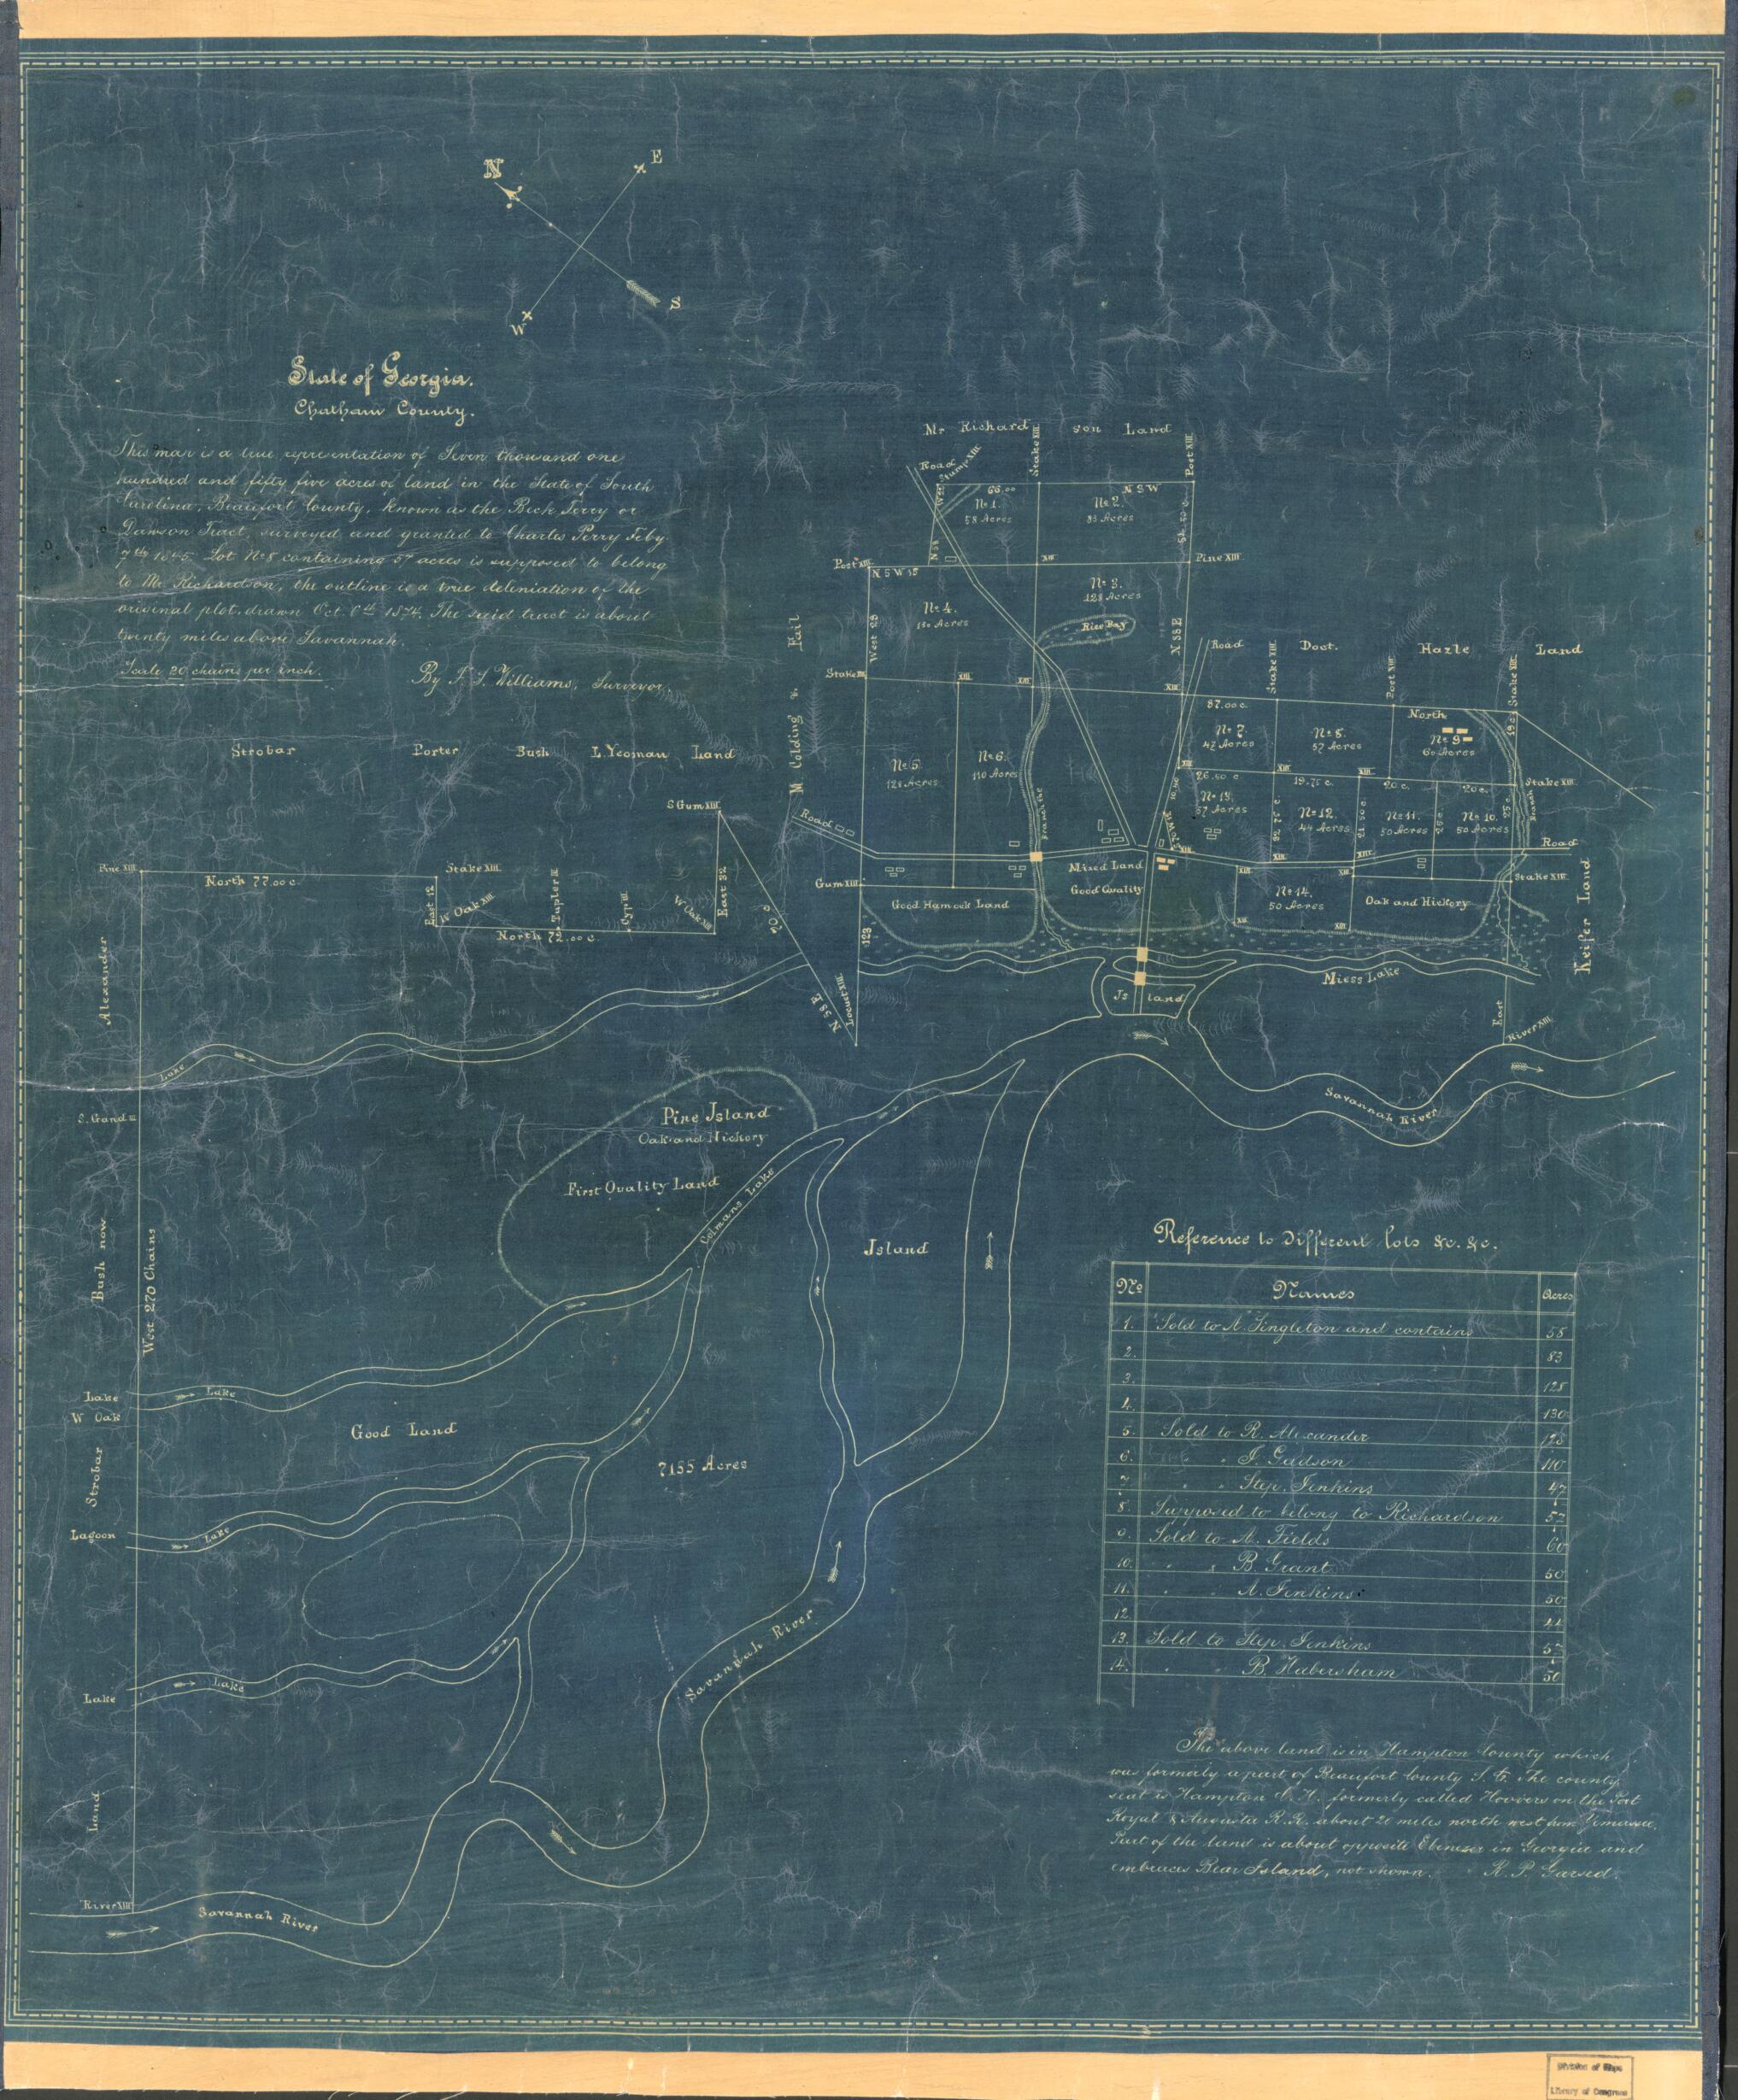 N
E
W
S
State of Georgia.
Chatham County.
This map is a true representation of Seven thousand one
hundred and fifty five acres of land in the State of South
Carolina, Beaufort County, known as the Beck Ferry or
Dawson Tract, surveyed and granted to Charles Perry Feby
7th 1845. Lot No 8 containing 57 acres is supposed to belong
to Mr. Richardson, the outline is a true deliniation of the
original plot, drawn Oct. 6th 1874. The said tract is about
twenty miles above Savannah.
Scale 20 chains per inch.
By F. S. Williams, Surveyor.
Mr Richard son Land
Road
Stump XIII
Stake XIII
Post XIII
66.00
N 5 W
No 1.
58 Acres
No 2.
83 Acres
Post XIII
N 5 W 15
Pine XIII
No 3.
128 Acres
No 4.
130 Acres
Rice Bay
West 28
N 88 E
M Colding & Fail
Stake III
XIII
XIII
XIII
Road
Stake XIII
Doct.
Post XIII
Hazle
Stake XIII
Land
87.00 c.
North
No 7.
47 Acres
No 8.
57 Acres
No 9
60 Acres
19 c
No 5.
128 Acres
No 6.
110 Acres
26.50 c.
XIII
19.75 c.
XIII
20 c.
20 c.
Stake XIII
No 13.
57 Acres
No 12.
44 Acres
No 11.
50 Acres
No 10.
50 Acres
25 c.
Branch
Road
Road
Mixed Land
Good Quality
Gum XIII
Good Hamock Land
No 14.
50 Acres
Oak and Hickory
Stake XIII
Keifer Land
Strobar
Porter
Bush
L. Yeoman
Land
S Gum XIII
Pine XIII
North 77.00 c.
Stake XIII
East 12
W Oak XIII
Cyp III
W Oak XIII
East 32
North 72.00 c.
123
N 38 E
Locust XIII
Is land
Miess Lake
East
River XIII
Savannah River
Alexander
Lake
S. Gand III
Pine Island
Oak and Hickory
First Quality Land
Colmans Lake
Island
Bush now
West 270 Chains
Lake
Lake
W Oak
Good Land
7155 Acres
Strobar
Lagoon
Lake
Lake
Lake
Land
Savannah River
River XIII
Savannah River
Reference to Different lots &c. &c.
No Names Acres
1. Sold to A. Singleton and contains 58
2. 83
3. 128
4. 130
5. Sold to R. Alexander 128
6. " " J. Gadson 110
7. " " Step. Jenkins 47
8. Supposed to belong to Richardson 57
9. Sold to A. Fields 60
10. " " B. Grant 50
11. " " A. Jenkins 50
12 44
13. Sold to Step. Jenkins 57
14. " " B. Habersham 50
The above land is in Hampton County which
was formerly a part of Beaufort County S. C. The county
seat is Hampton C. H. formerly called Hoovers on the Port
Royal & Augusta R. R. about 20 miles north west from Yemassee.
Part of the land is about opposite Ebenezer in Georgia and
embraces Bear Island, not shown. R. P. Garsed.
Division of Maps
Library of Congress